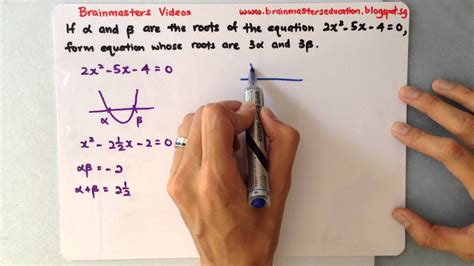 Brainmasters Videos www.brainmasterseducation.blogspot.sg
If α and β are the roots of the equation 2x²-5x-4=0,
form equation whose roots are 3α and 3β.
2x²-5x-4=0
α β
x²-2½x-2=0
αβ=-2
α+β=2½